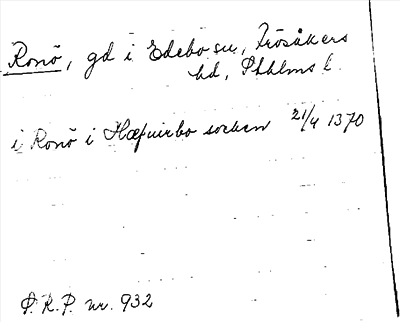 Ronö, gd i Edebo sn, Frösåkers
hd, Sthlms l.
i Ronö i Hæfuirbo socken 21/4 1370
P. R. P. nr. 932